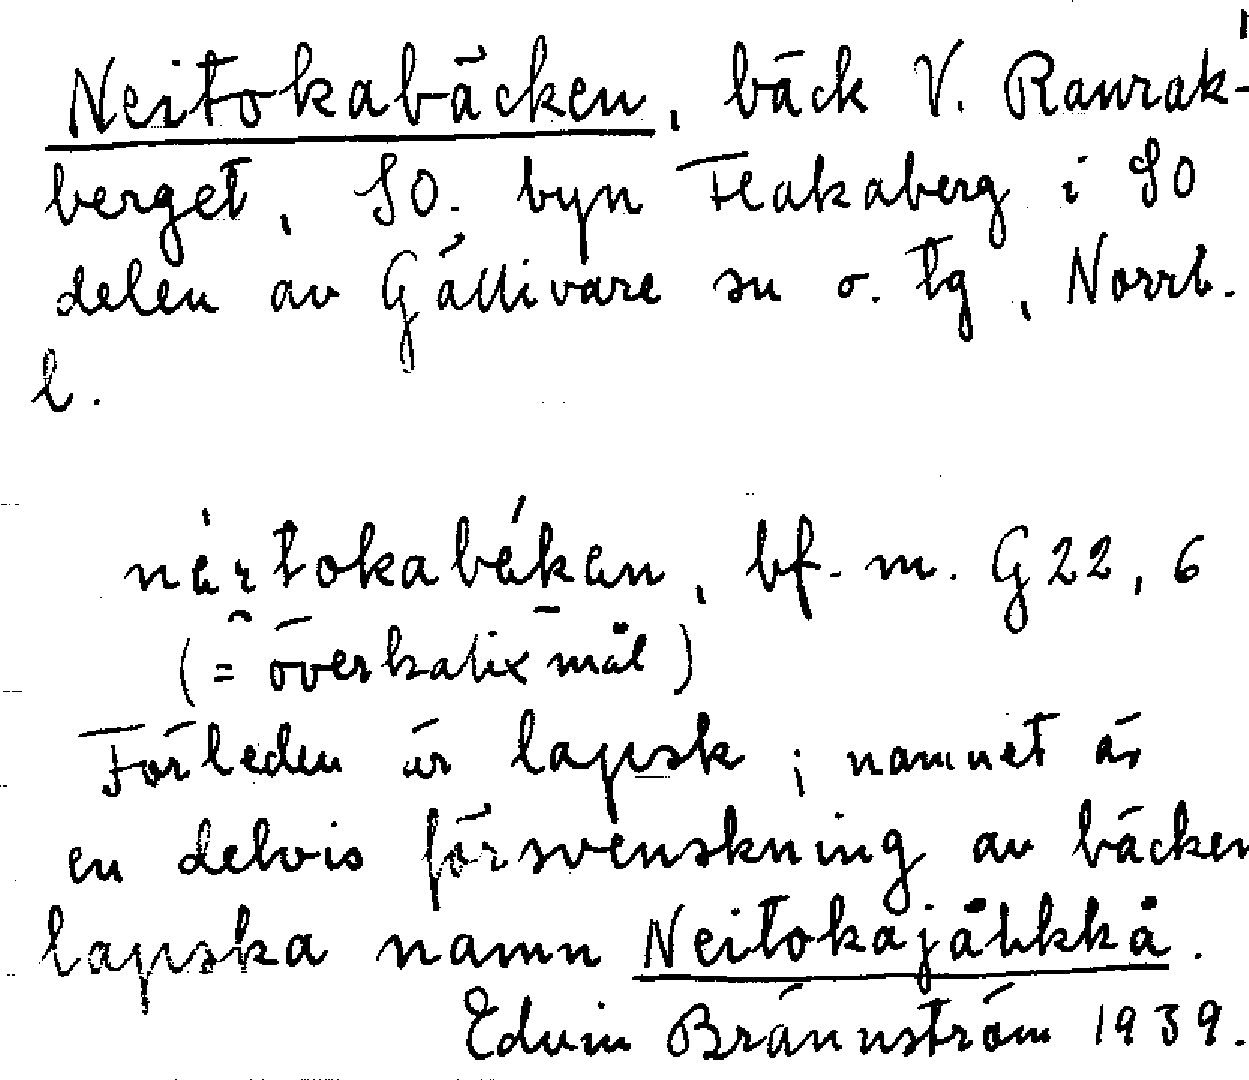 Neitokabäcken, bäck V. Ranrak-
berget, SO. byn Flakaberg i SO
delen av Gällivare sn o. tg, Norrb.
l.
nèi̯tokabǽkan, bf. m. G22, 6
(= överkalixmål)
Förleden är lapsk; namnet är
en delvis försvenskning av bäcken
lapska namn Neitokajåhkkå.
Edvin Brännström 1939.